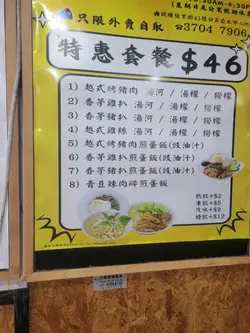 只限外賣自取
3704 7906
特惠套餐 $46
1) 越式烤豬肉 湯河 / 湯檬 / 撈檬
2) 香茅雞扒 湯河 / 湯檬 / 撈檬
3) 香茅豬扒 湯河 / 湯檬 / 撈檬
4) 越式雞絲 湯河 / 湯檬 / 撈檬
5) 越式烤豬肉煎蛋飯(豉油汁)
6) 香茅雞扒煎蛋飯(豉油汁)
7) 香茅豬扒煎蛋飯(豉油汁)
8) 青豆辣肉碎煎蛋飯
熱飲+$2
凍飲+$5
汽水+$9
特飲+$12